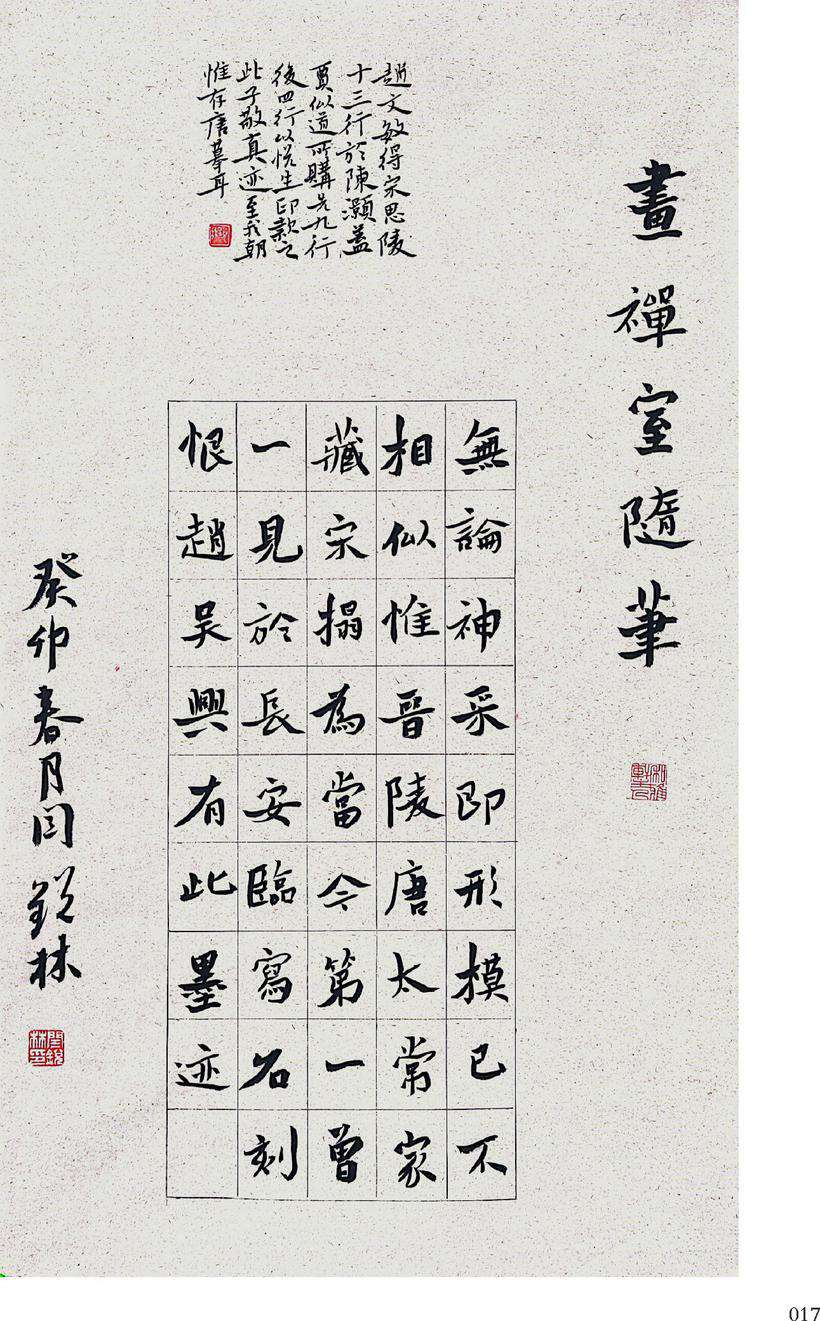 畫禪室隨筆
趙文敏得宋思陵
十三行於陳灝蓋
賈似道所購先九行
後四行以悅生印款之
此子敬真迹至我朝
惟存唐摹耳
無論神采即形模已不
相似惟晉陵唐太常家
藏宋搨為當今第一曾
一見於長安臨寫石刻
恨趙吳興有此墨迹
癸卯春月闫銳林
017